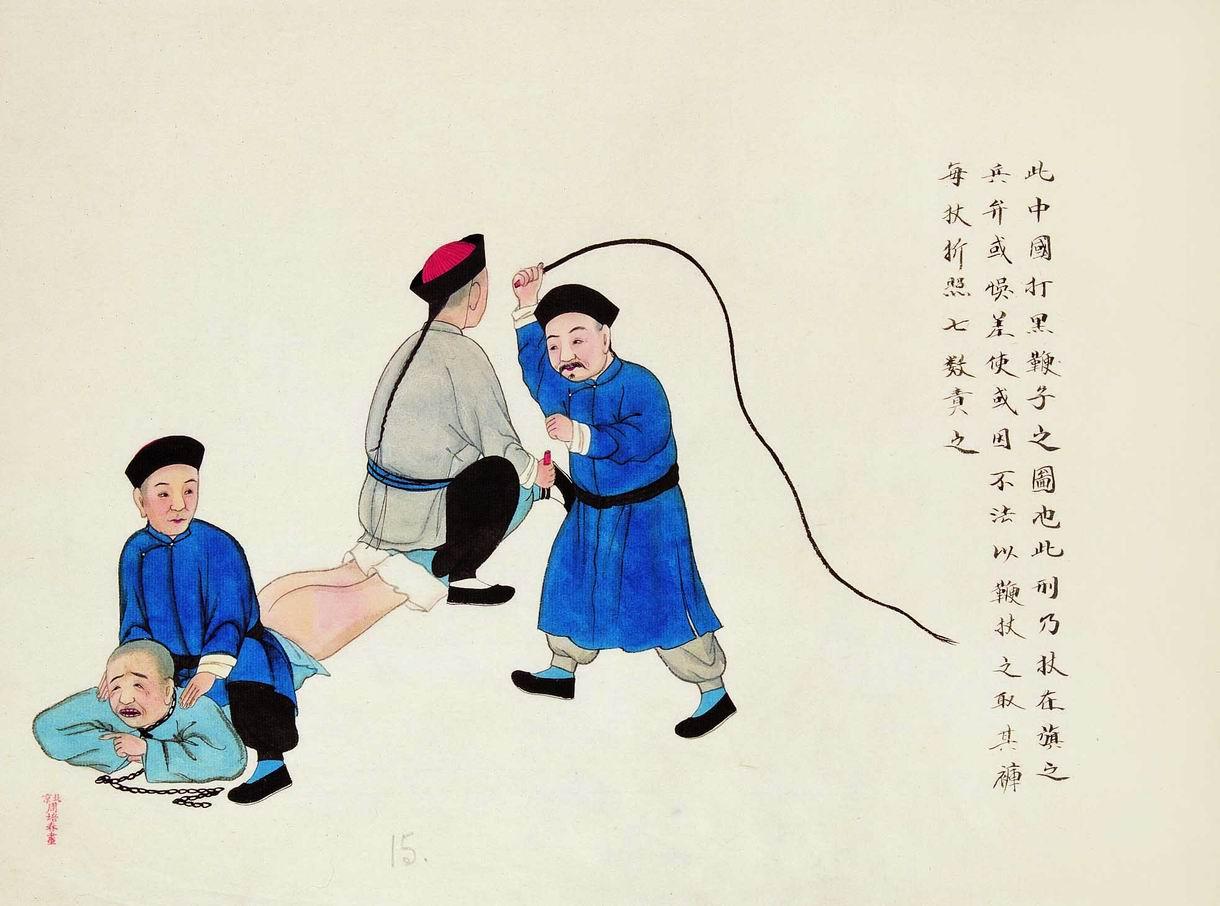 此中國打黑鞭子之圖也此刑乃扙在旗之
兵弁或悞差使或因不法以鞭扙之取其褲
每扙折照七數責之
北京周培春畫
15.